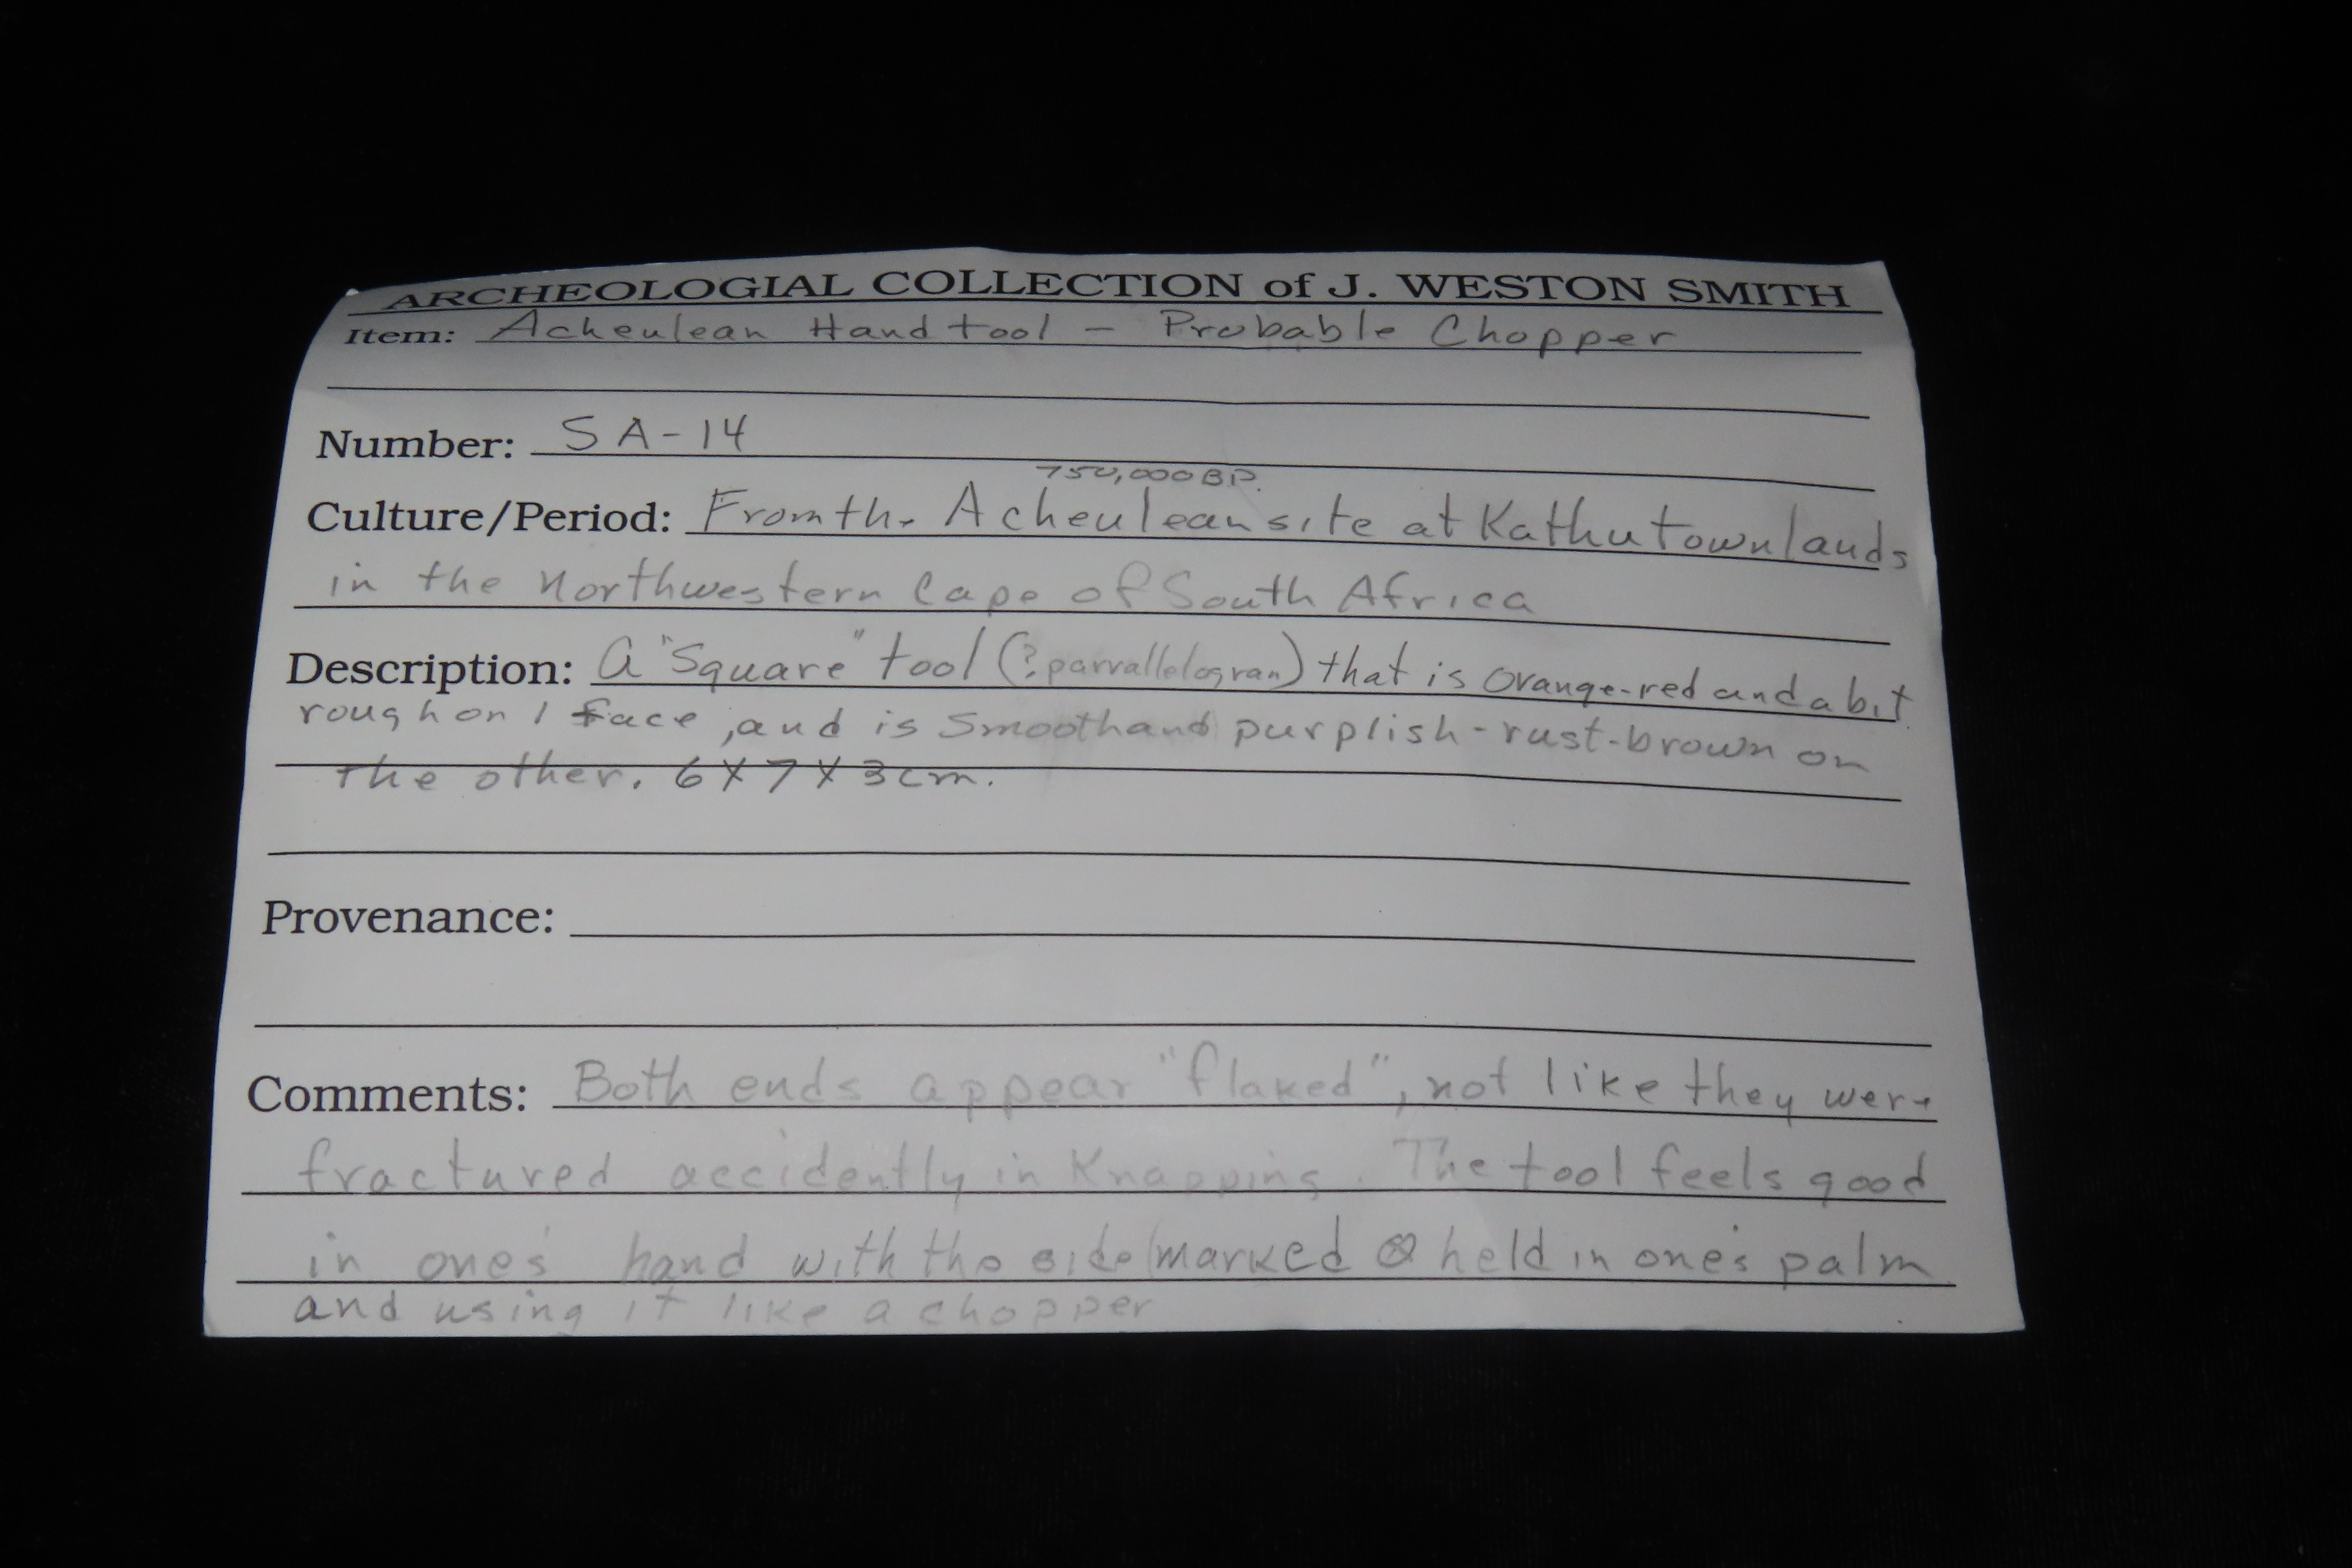 ARCHEOLOGIAL COLLECTION of J. WESTON SMITH
Item: Acheulean Hand tool - Probable Chopper
Number: SA-14
750,000 BP.
Culture/Period: From the Acheulean site at Kathu Townlands
in the Northwestern Cape of South Africa
Description: A "Square" tool (? parvallelogram) that is orange-red and a bit
rough on 1 face, and is smooth and purplish-rust-brown on
the other. 6 X 7 X 3 cm.
Provenance:
Comments: Both ends appear "flaked", not like they were
fractured accidently in Knapping. The tool feels good
in one's hand with the side marked ⊗ held in one's palm
and using it like a chopper